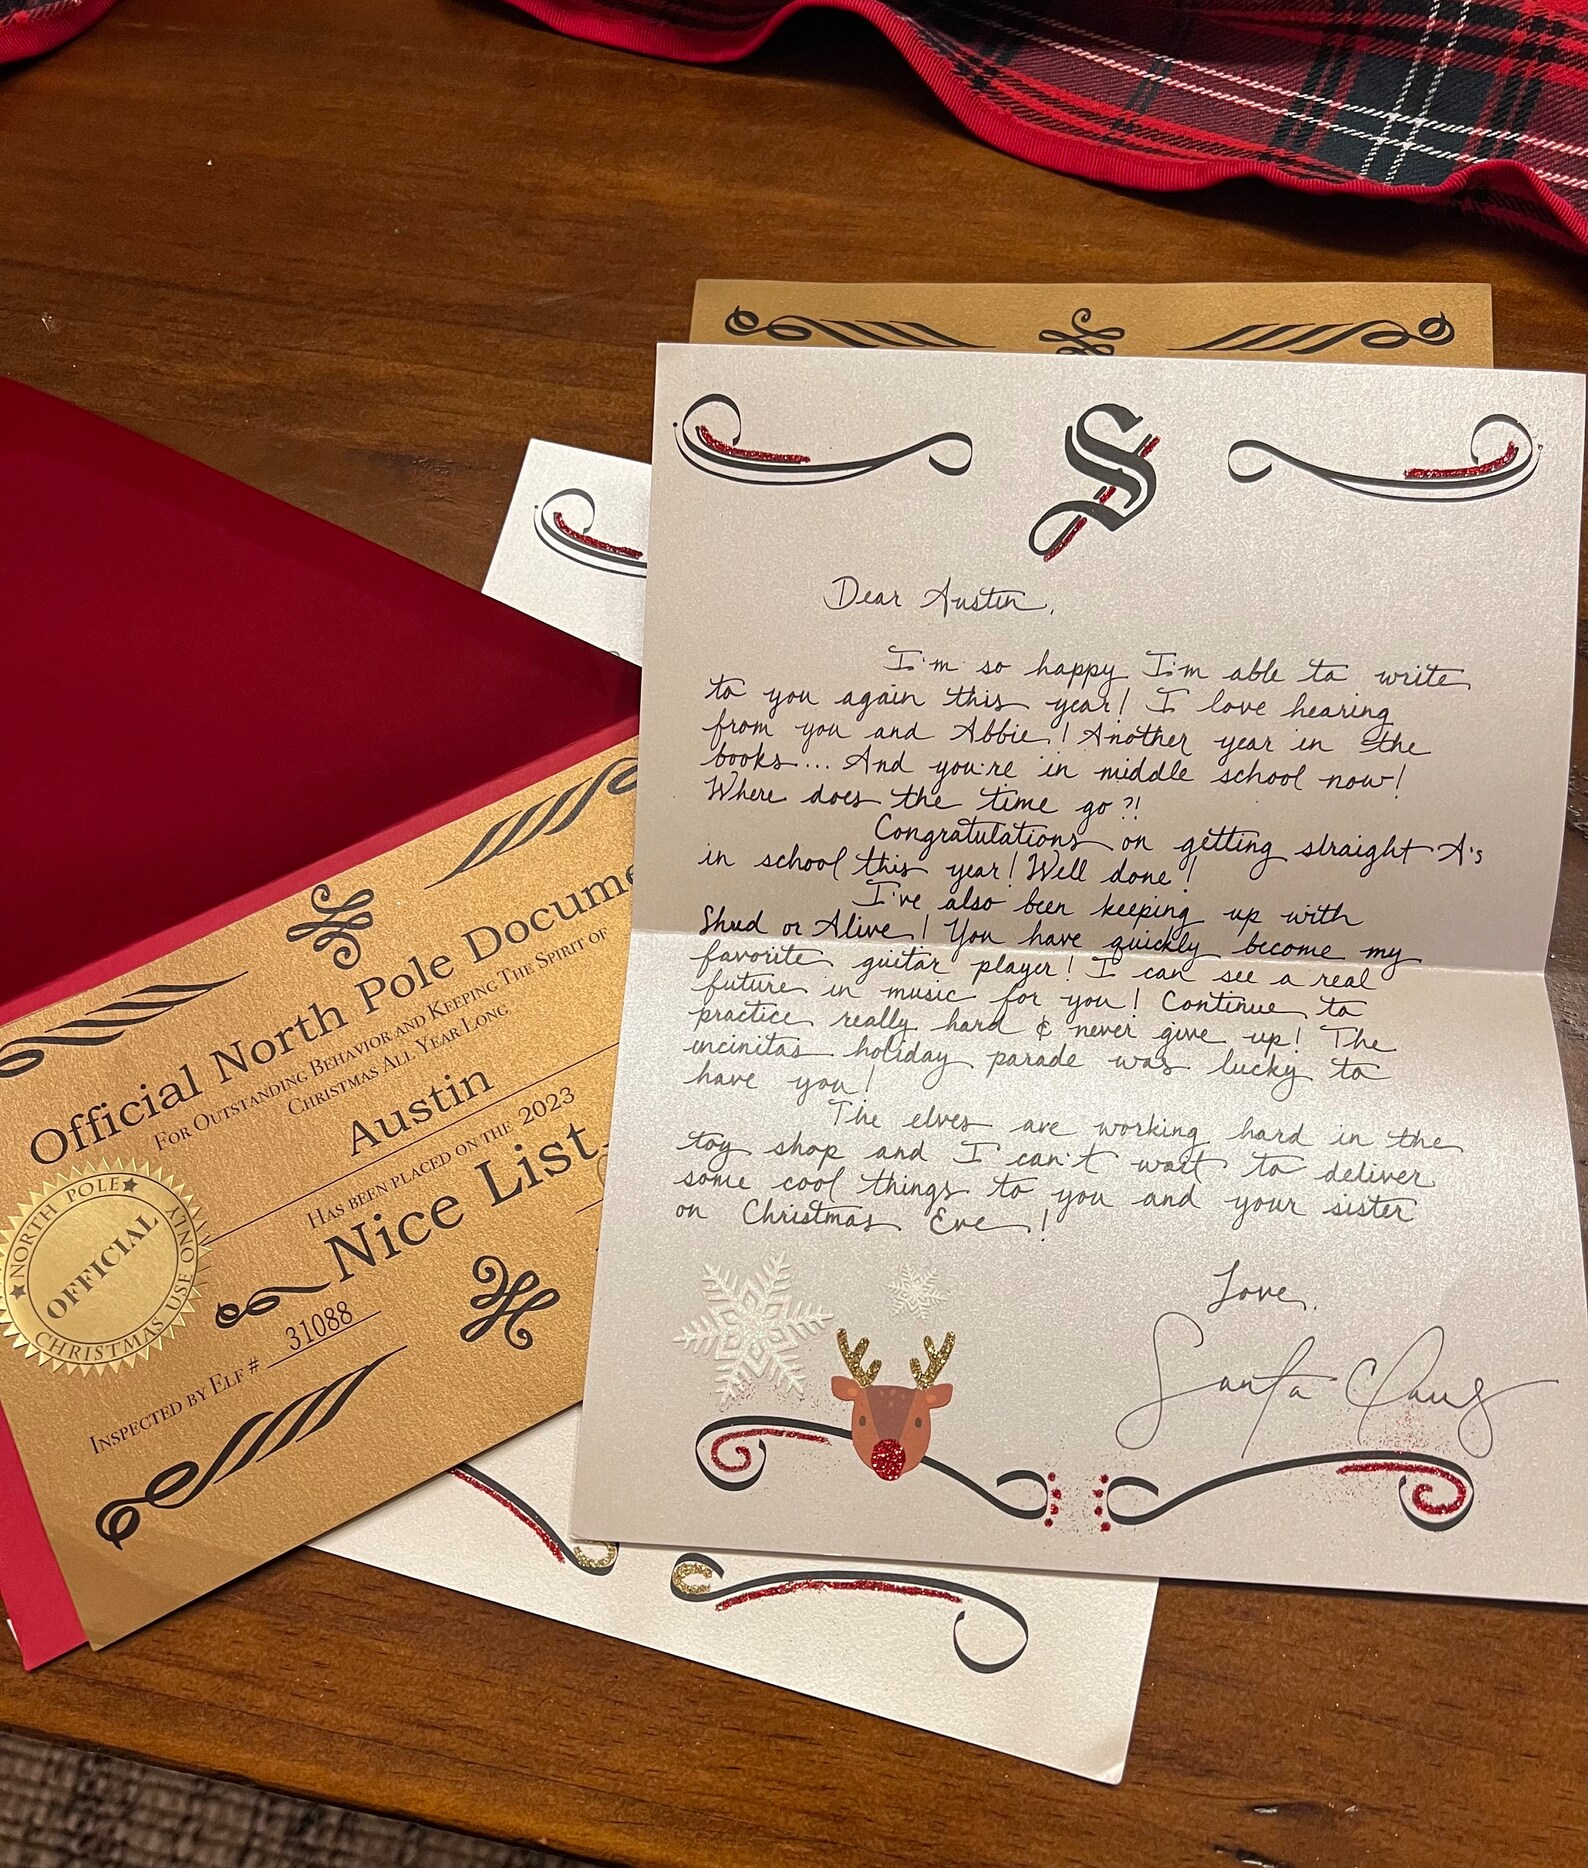 S
Dear Austin,
I'm so happy I'm able to write
to you again this year! I love hearing
from you and Abbie! Another year in the
books... And you're in middle school now!
Where does the time go?!
Congratulations on getting straight A's
in school this year! Well done!
I've also been keeping up with
Shred or Alive! You have quickly become my
favorite guitar player! I can see a real
future in music for you! Continue to
practice really hard & never give up! The
incinitas holiday parade was lucky to
have you!
The elves are working hard in the
toy shop and I can't wait to deliver
some cool things to you and your sister
on Christmas Eve!
Love,
Santa Claus
Official North Pole Docume
For Outstanding Behavior and Keeping The Spirit of
Christmas All Year Long
Austin
Has been placed on the 2023
Nice List
Inspected by Elf # 31088
NORTH POLE
OFFICIAL
CHRISTMAS USE ONLY